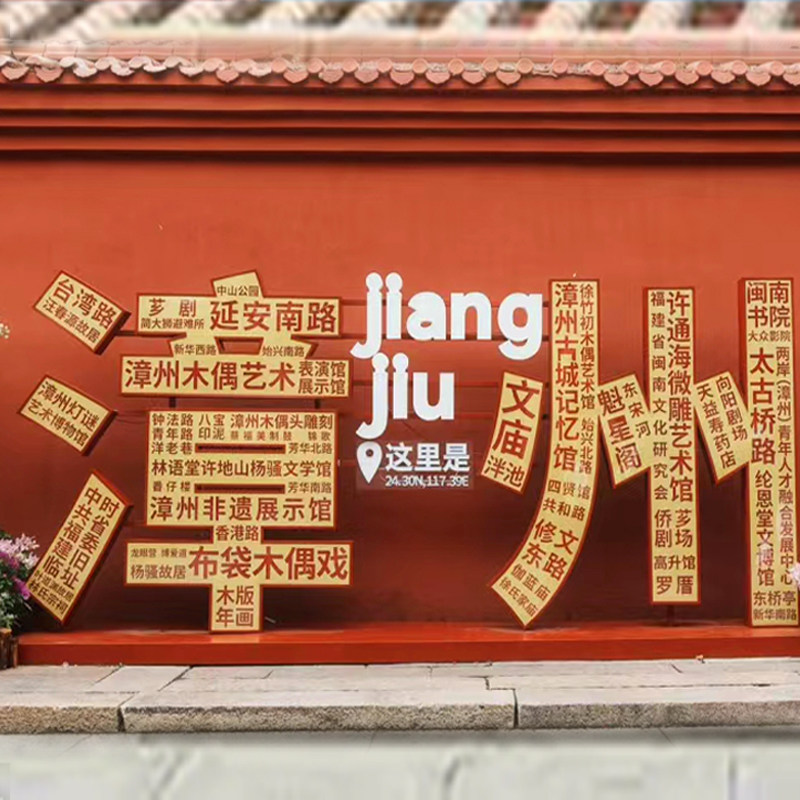 台湾路
汪春源故居
漳州灯谜
艺术博物馆
时
中省委旧址
共福建临
中山公园
芗剧
简大狮避难所
延安南路
新华西路
始兴南路
漳州木偶艺术
表演馆
展示馆
钟法路
八宝
漳州木偶头雕刻
青年路
印泥
蔡福美制鼓
锦歌
洋老巷
芳华北路
林语堂许地山杨骚文学馆
番仔楼
芳华南路
漳州非遗展示馆
香港路
龙眼营
博爱道
杨骚故居
布袋木偶戏
木版
年画
jiang
jiu
这里是
24.30N,117.39E
文庙
泮池
漳州古城记忆馆
徐竹初木偶艺术馆
始兴北路
四贤馆
共和路
修文
东路
伽蓝庙
徐氏家庙
魁星阁
东宋河
福建省闽南文化研究会
许通海微雕艺术馆
侨
芗剧场
高升馆
罗厝
天益寿药店
向阳剧场
闽南
书院
大众影院
太古桥路
两岸(漳州)青年人才融合发展中心
纶恩堂文博馆
东桥亭
新华南路